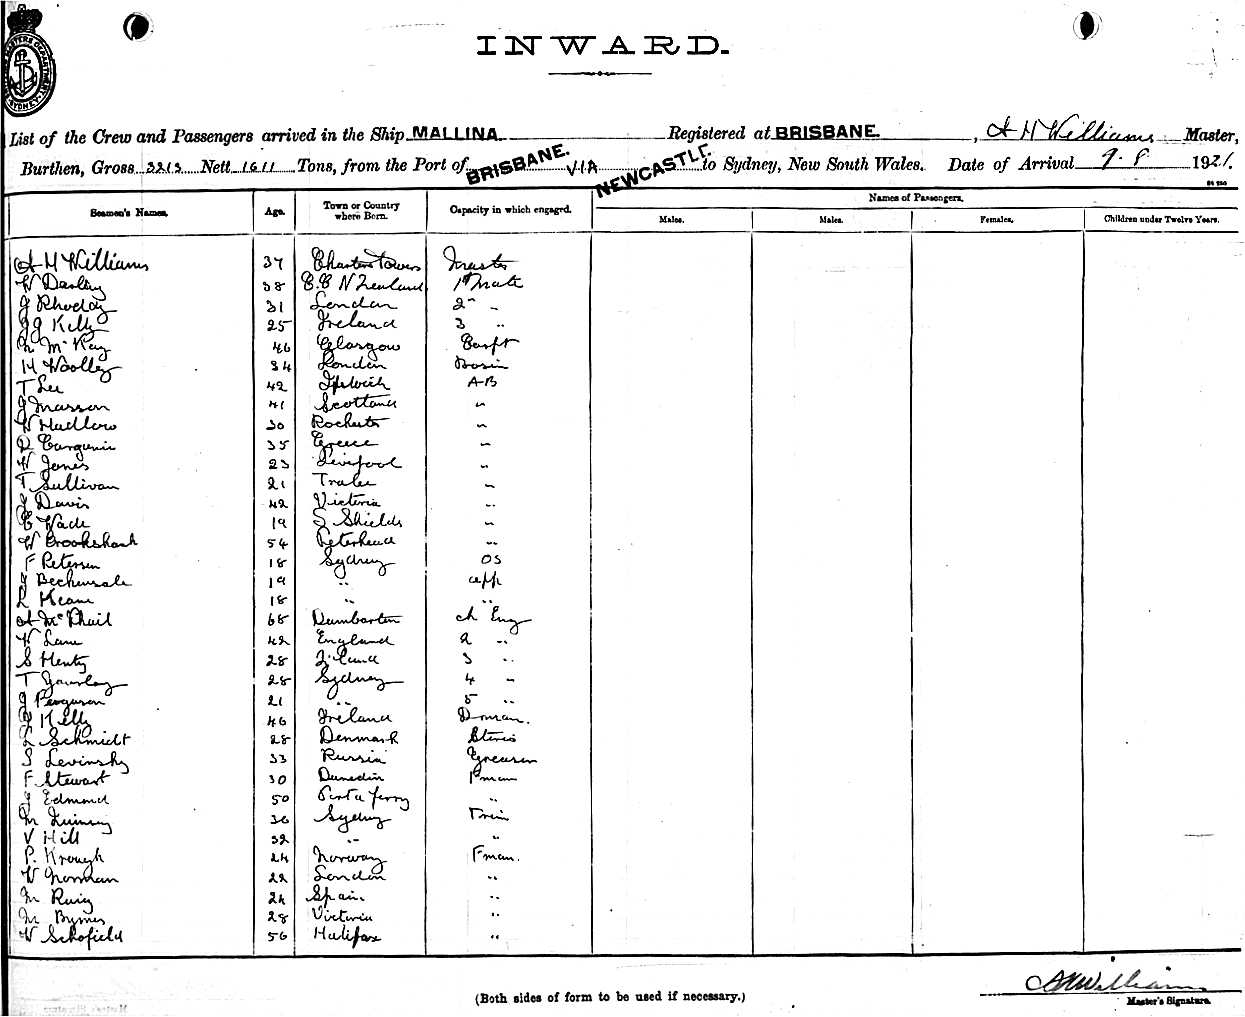 INWARD.
List of the Crew and Passengers arrived in the Ship MALLINA Registered at BRISBANE, A H Williams Master,
Burthen, Gross 3213 Nett 1611 Tons, from the Port of BRISBANE. VIA NEWCASTLE to Sydney, New South Wales. Date of Arrival 9.8 1921.
Seamen's Names. Age. Town or Country where Born. Capacity in which engaged. Names of Passengers.
Males. Males. Females. Children under Twelve Years.
A H Williams 37 Charters Towers Master
W Darley 38 N Zealand 1st Mate
J Rhoday 31 London 2 "
J J Kelly 25 Ireland 3 "
McKay 46 Glasgow Carpt
H Woolley 34 London Bosin
T Lee 42 Ipswich A-B
J Masson 41 Scotland "
W Hadlow 30 "
35 Greece "
W Jones 23 Liverpool "
T Sullivan 21 Tralee "
J Davis 42 Victoria "
E Wade 19 S Shields "
W Brookshank 54 Peterhead "
F Petersen 18 Sydney OS
J Beckinsale 19 " app
L Keane 18 " "
A McPhail 68 Dumbarton ch Eng
W Lane 42 England 2 "
S Henty 28 3 "
T Gourlay 28 Sydney 4 "
J Ferguson 21 " 5 "
Kelly 46 Ireland D man.
L Schmidt 28 Denmark
S Levinsky 33 Russia Greaser
F Stewart 30 Dunedin Fman
J Edmond 50 Porta ferry "
M 36 Sydney Trim
V Hill 32 " "
P. Krough 24 Norway Fman.
W Norman 22 London "
M Ruiz 24 Spain "
M Byrnes 28 Victoria "
W Schofield 56 Halifax "
(Both sides of form to be used if necessary.)
A H Williams
Master's Signature.